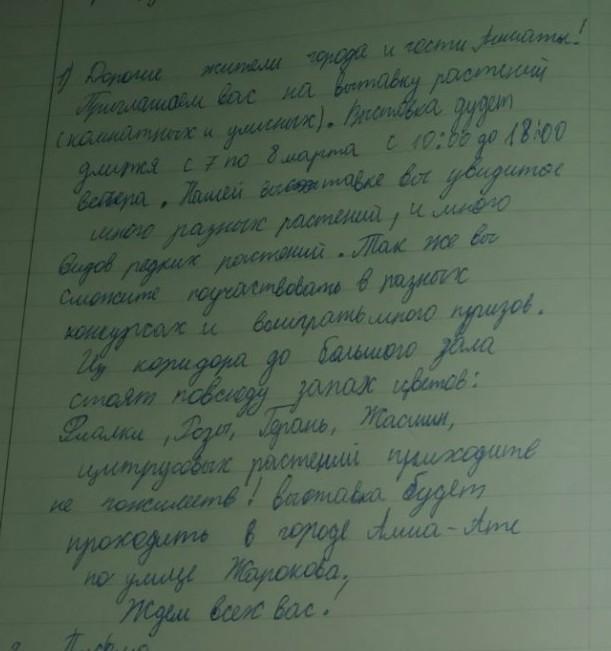 1) Дорогие жители города и гости Алматы!
Приглашаем вас на выставку растений
(комнатных и уличных). Выставка будет
длится с 7 по 8 марта с 10:00 до 18:00
вечера. Нашей выставке вы увидитое
много разных растений, и много
видов редких растений. Так же вы
сможите поучаствовать в разных
конкурсах и выиграть много призов.
Из коридора до большого зала
стоят повсюду запах цветов:
Фиалки, Розы, Герань, Жасмин,
цитрусовых растений приходите
не пожилеете! выставка будет
проходить в городе Алма-Ате
по улице Жарокова,
Ждем всех вас!